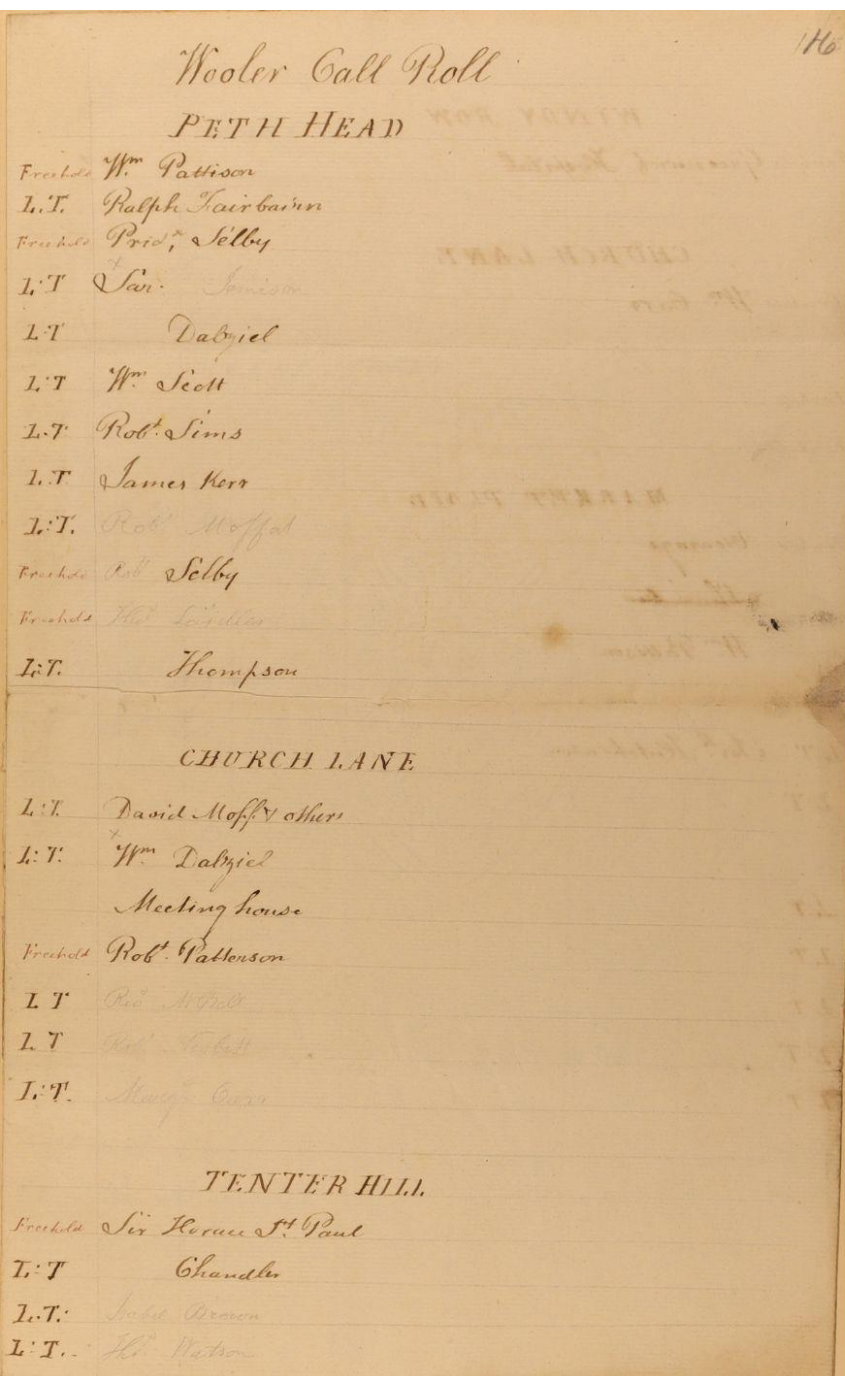 116
Wooler Call Roll
PETH HEAD
Freehold Wm. Pattison
L.T. Ralph Fairbairn
Freehold Prid, Selby
L:T Jas. Jamison
L:T Dabziel
L:T Wm. Scott
L.T Robt. Sims
L.T James Kerr
L:T. Robt Moffat
Freehold Robt Selby
Freehold Thos
L:T. Thompson
CHURCH LANE
L:T. David Moff. & others
L:T. Wm Dalziel
Meeting house
Freehold Robt. Patterson
L T
L T Robt Nesbitt
L:T. Margt Carr
TENTER HILL
Freehold Sir Horace St. Paul
L:T Chandler
L.T: Isabel Brown
L:T. Thos Watson